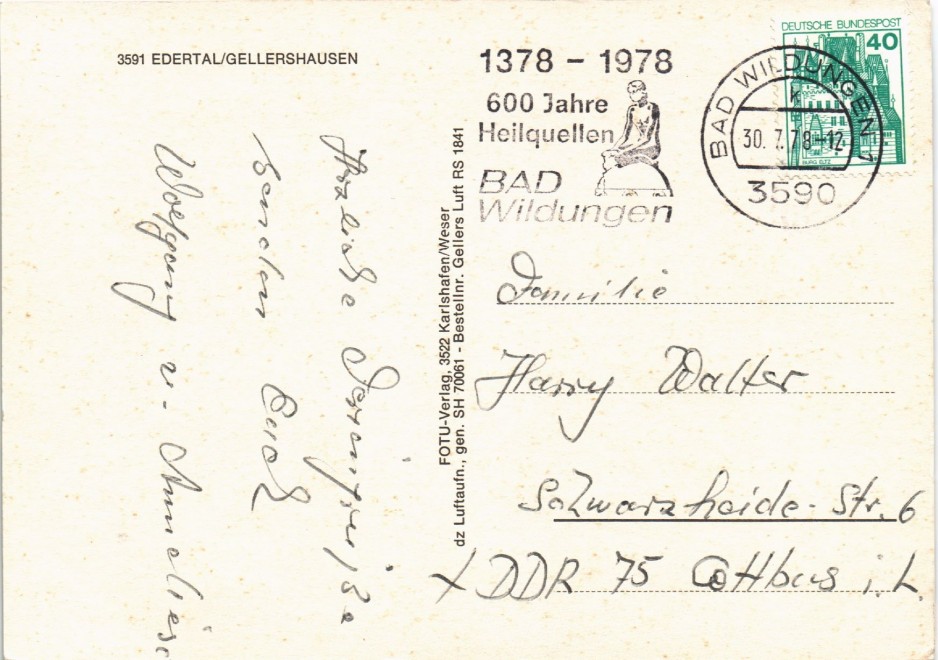 3591 EDERTAL/GELLERSHAUSEN
Herzliche Feriengrüße
senden Euch
Wolfgang u. Anneliese
FOTU-Verlag, 3522 Karlshafen/Weser
dz Luftaufn., gen. SH 70061 - Bestellnr. Gellers Luft RS 1841
1378 – 1978
600 Jahre
Heilquellen
BAD
Wildungen
BAD WILDUNGEN 1
k
30. 7. 78-12
3590
DEUTSCHE BUNDESPOST
40
BURG ELTZ
Familie
Harry Walter
Schwarzheide-Str. 6
X DDR 75 Cottbus i. L.